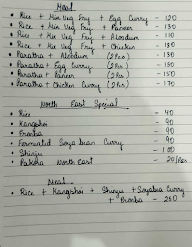 Meal
• Rice + Mix Veg Fry + Egg Curry - 120
• Rice + Mix Veg Fry + Paneer - 130
• Rice + Mix Veg Fry + Aloodum - 110
• Rice + Mix Veg Fry + Chicken - 150
• Paratha + Aloodum (2Pcs) - 130
• Paratha + Egg Curry (2Pcs) - 130
• Paratha + Paneer (2Pcs) - 150
• Paratha + Chicken Curry (2Pcs) - 170
North East Special
• Rice - 40
• Kangshoi - 90
• Eromba - 90
• Fermented Soya bean Curry - 90
• Shinju - 100
• Pakoka North East - 20/Pcs
Meal
• Rice + Kangshoi + Shinju + Soyabin Curry
+ Eromba - 250